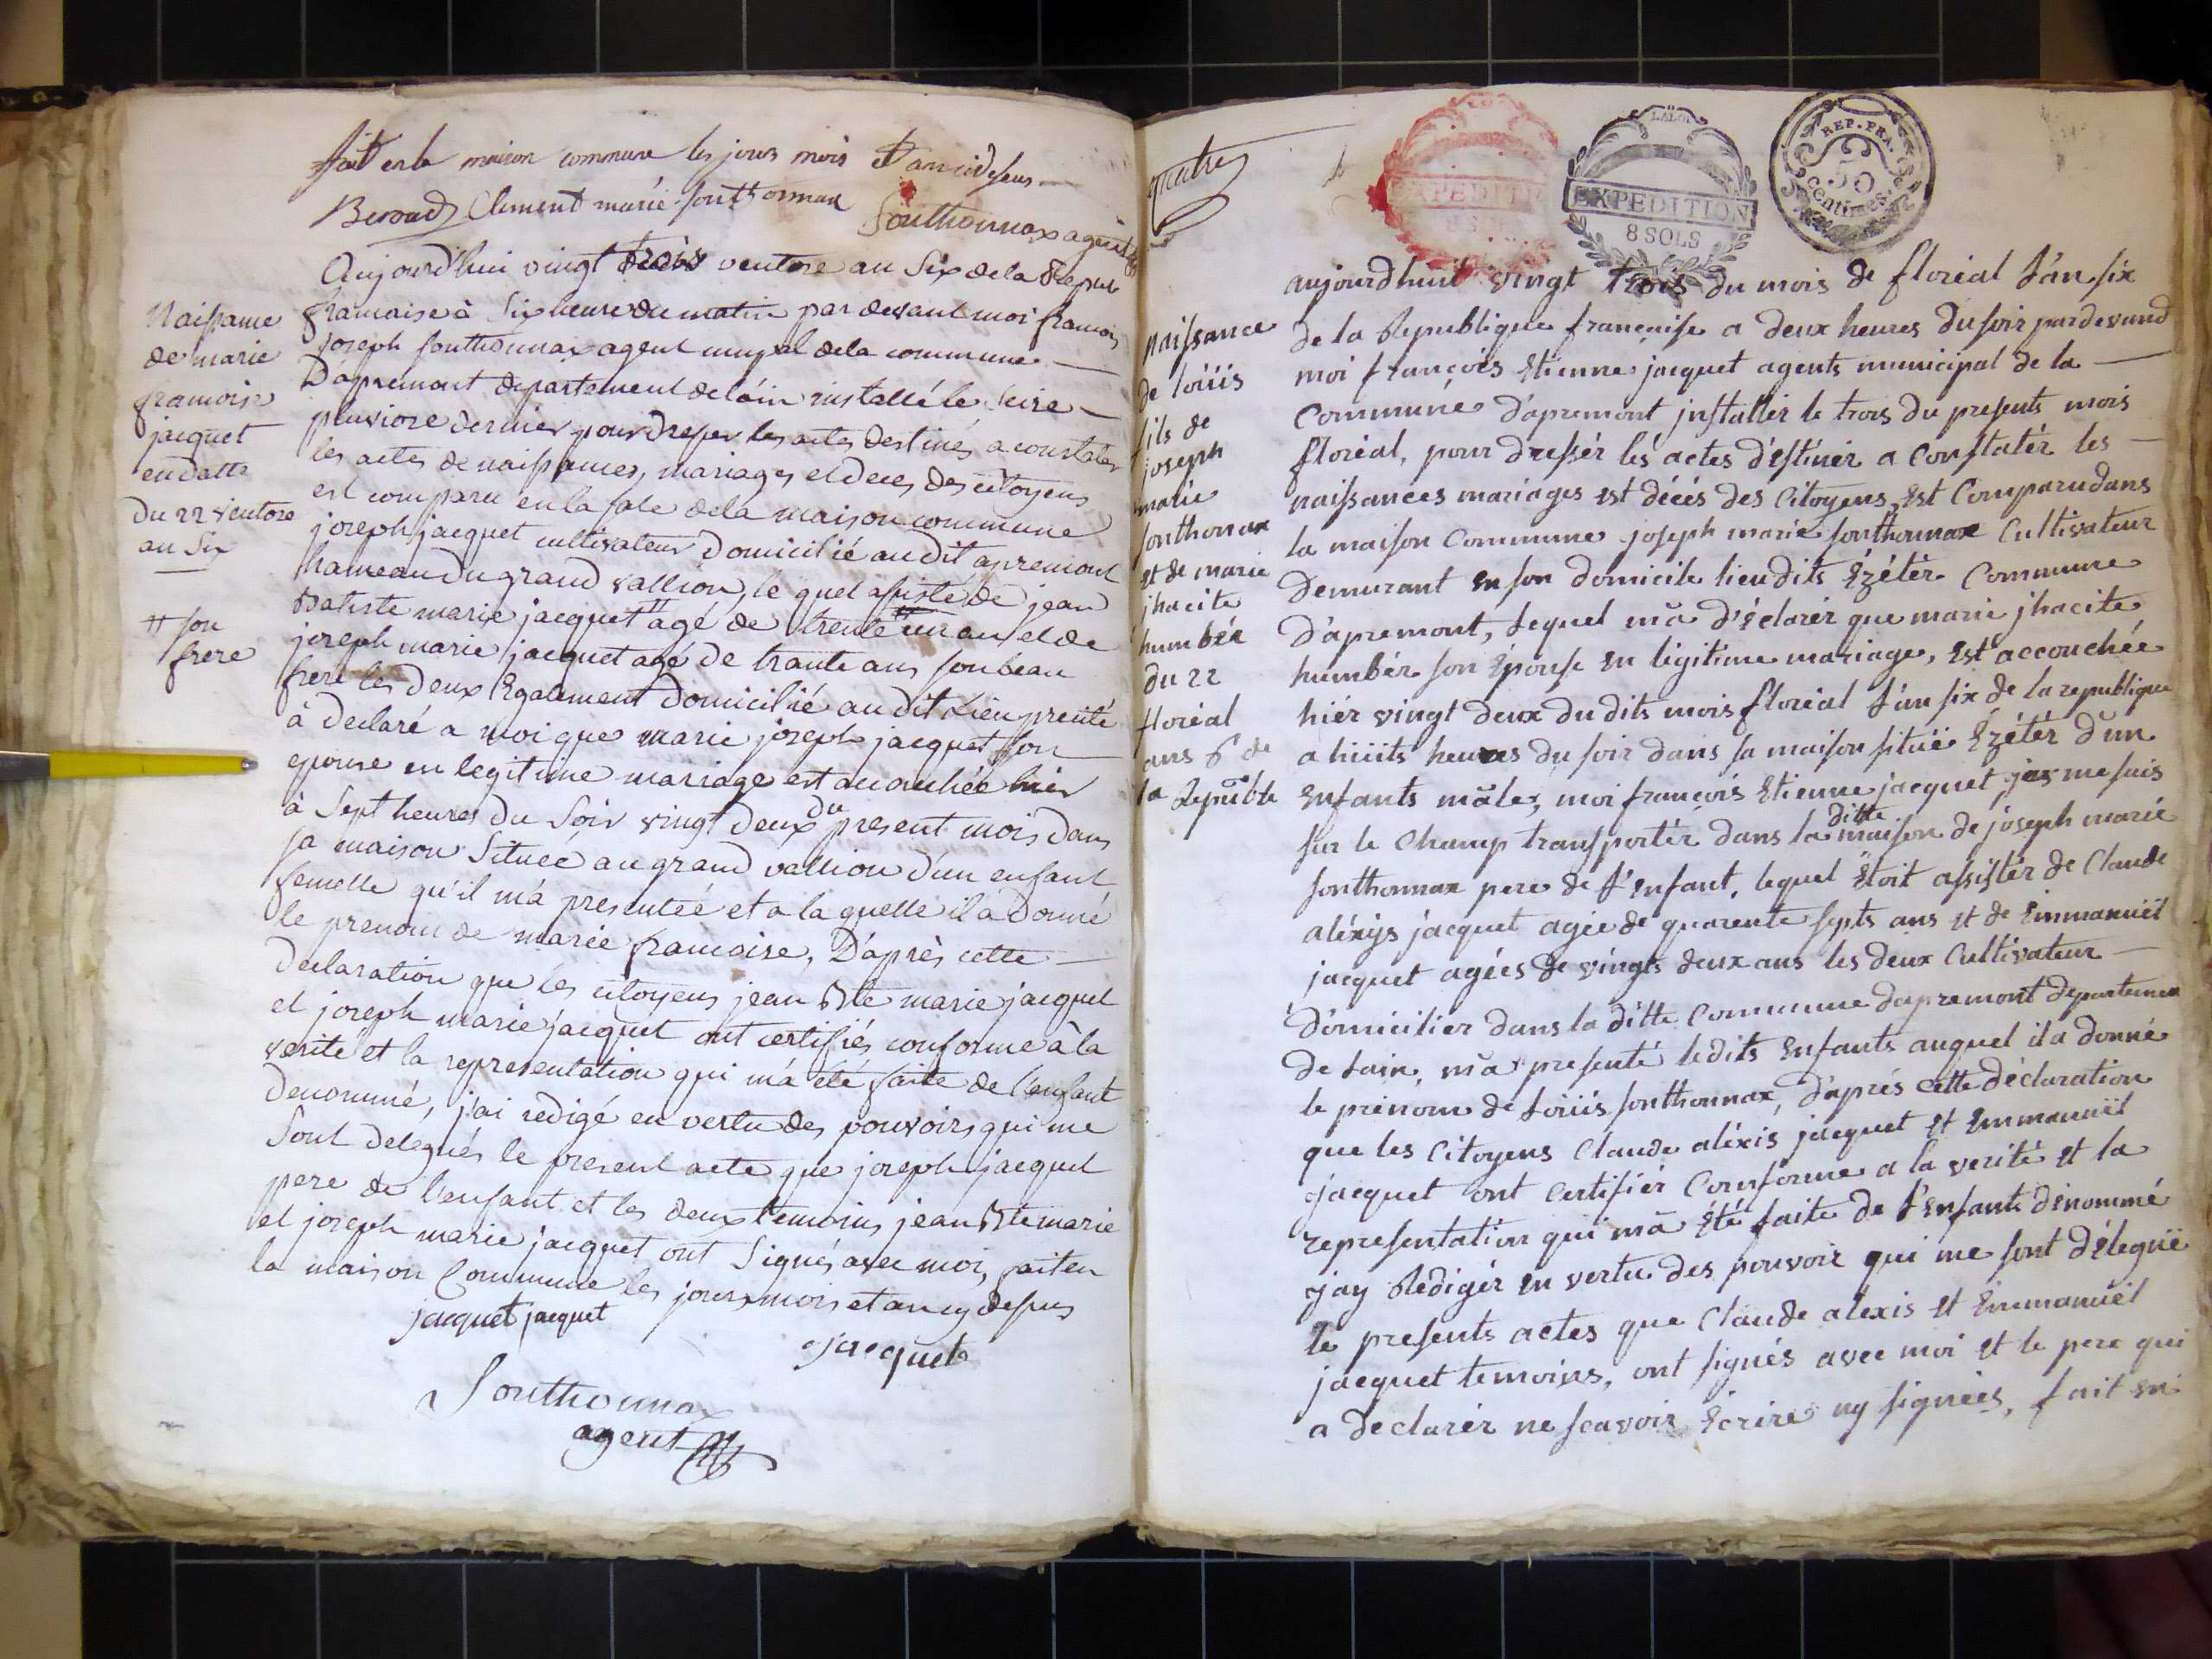 fait en la maison commune les jours mois et an cidessus
Beroud Clement marie sonthonnax
Sonthonnax agent
Aujourd'hui vingt trois ventose an Six de la Repub
francaise à Six heure du matin par devant moi francois
joseph sonthonnax agent mupal dela commune
Dapremont departement de l'ain installé le seise
pluviose dernier pour dresser les actes destinés a constater
les actes de naissances, mariages et deces des citoyens
est comparu en la sale dela maison commune
joseph jacquet cultivateur domicilié audit apremont
hameau du grand vallion, le quel assisté de jean
Batiste marie jacquet # agé de trente un an et de
joseph marie jacquet agé de trante ans son beau
frere les deux Egalement domicilié au dit Lieu prenté
à declaré a moi que marie joseph jacquet son
epouse en legitime mariage est accouchée hier
à Sept heures du Soir vingt deux du present mois dans
sa maison Située au grand vallion d'un enfant
femelle qu'il m'a presentée et a laquelle il a donné
le prenom de marie francoise, D'après cette
declaration que les citoyens jean Bte marie jacquet
et joseph marie jacquet ont certifiés conforme à la
verité et la representation qui m'a été faite de l'enfant
denommé, j'ai redigé en vertu des pouvoirs qui me
Sont delegués le present acte que joseph jacquet
pere de l'enfant et les deux temoins jean Bte marie
et joseph marie jacquet ont Signés avec moi, fait en
la maison Commune les jours mois et an cy dessus
jacquet jacquet
jacquet
Sonthonnax
agent
Naissance
de marie
francoise
jacquet
en datte
du 22 ventose
an Six
# son
frere
quatre
EXPEDITION
8 SOLS
LA LOI
EXPEDITION
8 SOLS
REP. FRA.
50
centimes
naissance
de loüis
fils de
joseph
marie
sonthonax
et de marie
jhacite
humbér
du 22
floréal
ans 6 de
la Republi
aujourdhuit vingt trois du mois de floréal l'an six
de la Republique françaisse a deux heures du soir pardevand
moi françois Etienne jacquet agents municipal de la
Commune d'apremont jnstallér le trois du presents mois
floréal, pour dressér lés actes d'éstinér a Constatér les
naissances mariages est décés des Citoyens, Est Comparu dans
la maison Commune joseph marie sonthonnax Cultivateur
Demurant en son domicile lieu dits Ezétér Commune
D'apremont, Lequel m'a d'éclarér que marie jhacite
humbér son Epouse en légitime mariage, Est accouchée
hiér vingt deux du dits mois floréal l'an six de la republique
a huits heures du soir dans sa maison situeë Ezétér d'un
Enfants mâle, moi françois Etienne jacquet, me suis
sur le Champ transportér dans la ditte maison de joseph marie
sonthonnax pere de l'Enfant, lequel Etoit assistér de Claude
aléxijs jacquet agée de quarente septs ans et de Emmanuël
jacquet agées de vingts deux ans les deux Cultivateur
D'omicilier dans la ditte Commune dapremont departemen
De Lain, m'a presenté ledits Enfants auquel il a donné
le prénom de Loüis sonthonnax, d'après cette déclaration
que les Citoyens Claude aléxis jacquet et Emmanuël
jacquet ont Certifiér Conforme a la verité et la
representation qui m'a Eté faite de l'Enfant dénommé
jay Rédigér en vertu des pouvoir qui me sont déleguë
le presents actes que Claude alexis et Emmanuël
jacquet temoins, ont signés avec moi et le pere qui
a declarér ne scavoir Ecrire ny signées, fait en